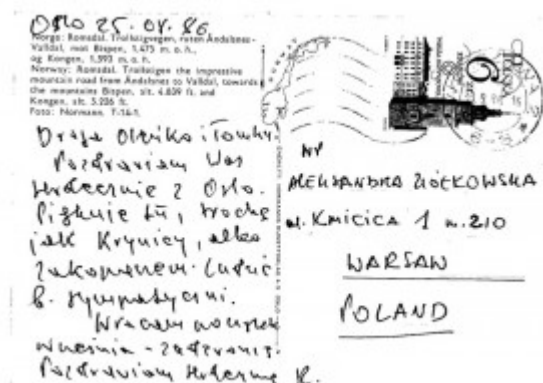 Oslo 25.08.86.
Norge: Romsdal. Trollstigvegen, ruten Åndalsnes-
Valldal, mot Bispen, 1.475 m.o.h.,
og Kongen, 1.593 m.o.h.
Norway: Romsdal. Trollstigen the impressive
mountain road from Åndalsnes to Valldal, towards
the mountains Bispen, alt. 4.839 ft. and
Kongen, alt. 5.226 ft.
Foto: Normann. 7-14-1.
Droga Oleńko i Tomku
Pozdrawiam Was
serdecznie z Oslo.
Pięknie tu, trochę
jak Krynicy, albo
Zakopanem. Ludzie
b. sympatyczni.
Wracam
września - zadzwonię.
Pozdrawiam serdecznie R.
NORWAY
WP
ALEKSANDRA ZIÓŁKOWSKA
ul. KMICICA 1 m. 210
WARSAW
POLAND